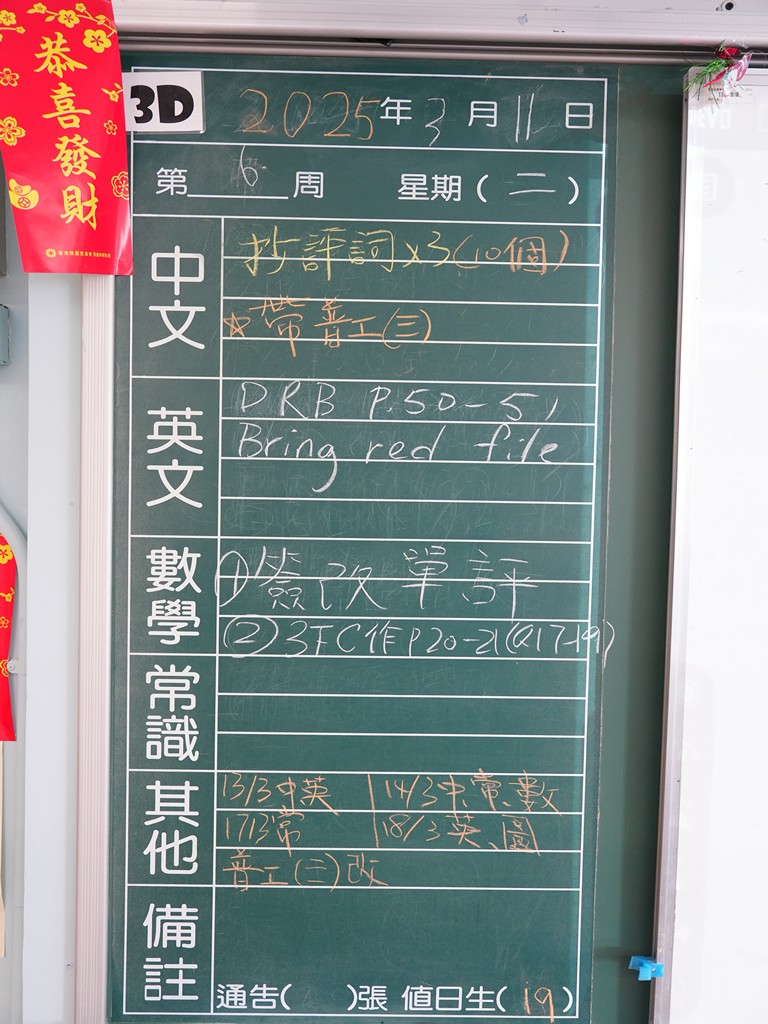 恭喜發財
3D
2025年3月11日
第6周 星期(二)
中文
抄評詞x3(10個)
☆帶普工(三)
英文
DRB P.50-51
Bring red file
數學
①簽改單評
②3下C作P20-21(Q17-19)
常識
其他
13/3中英 | 14/3中、電、數
17/3常 | 18/3英、圖
普工(三)改
備註
通告( )張 值日生(19)